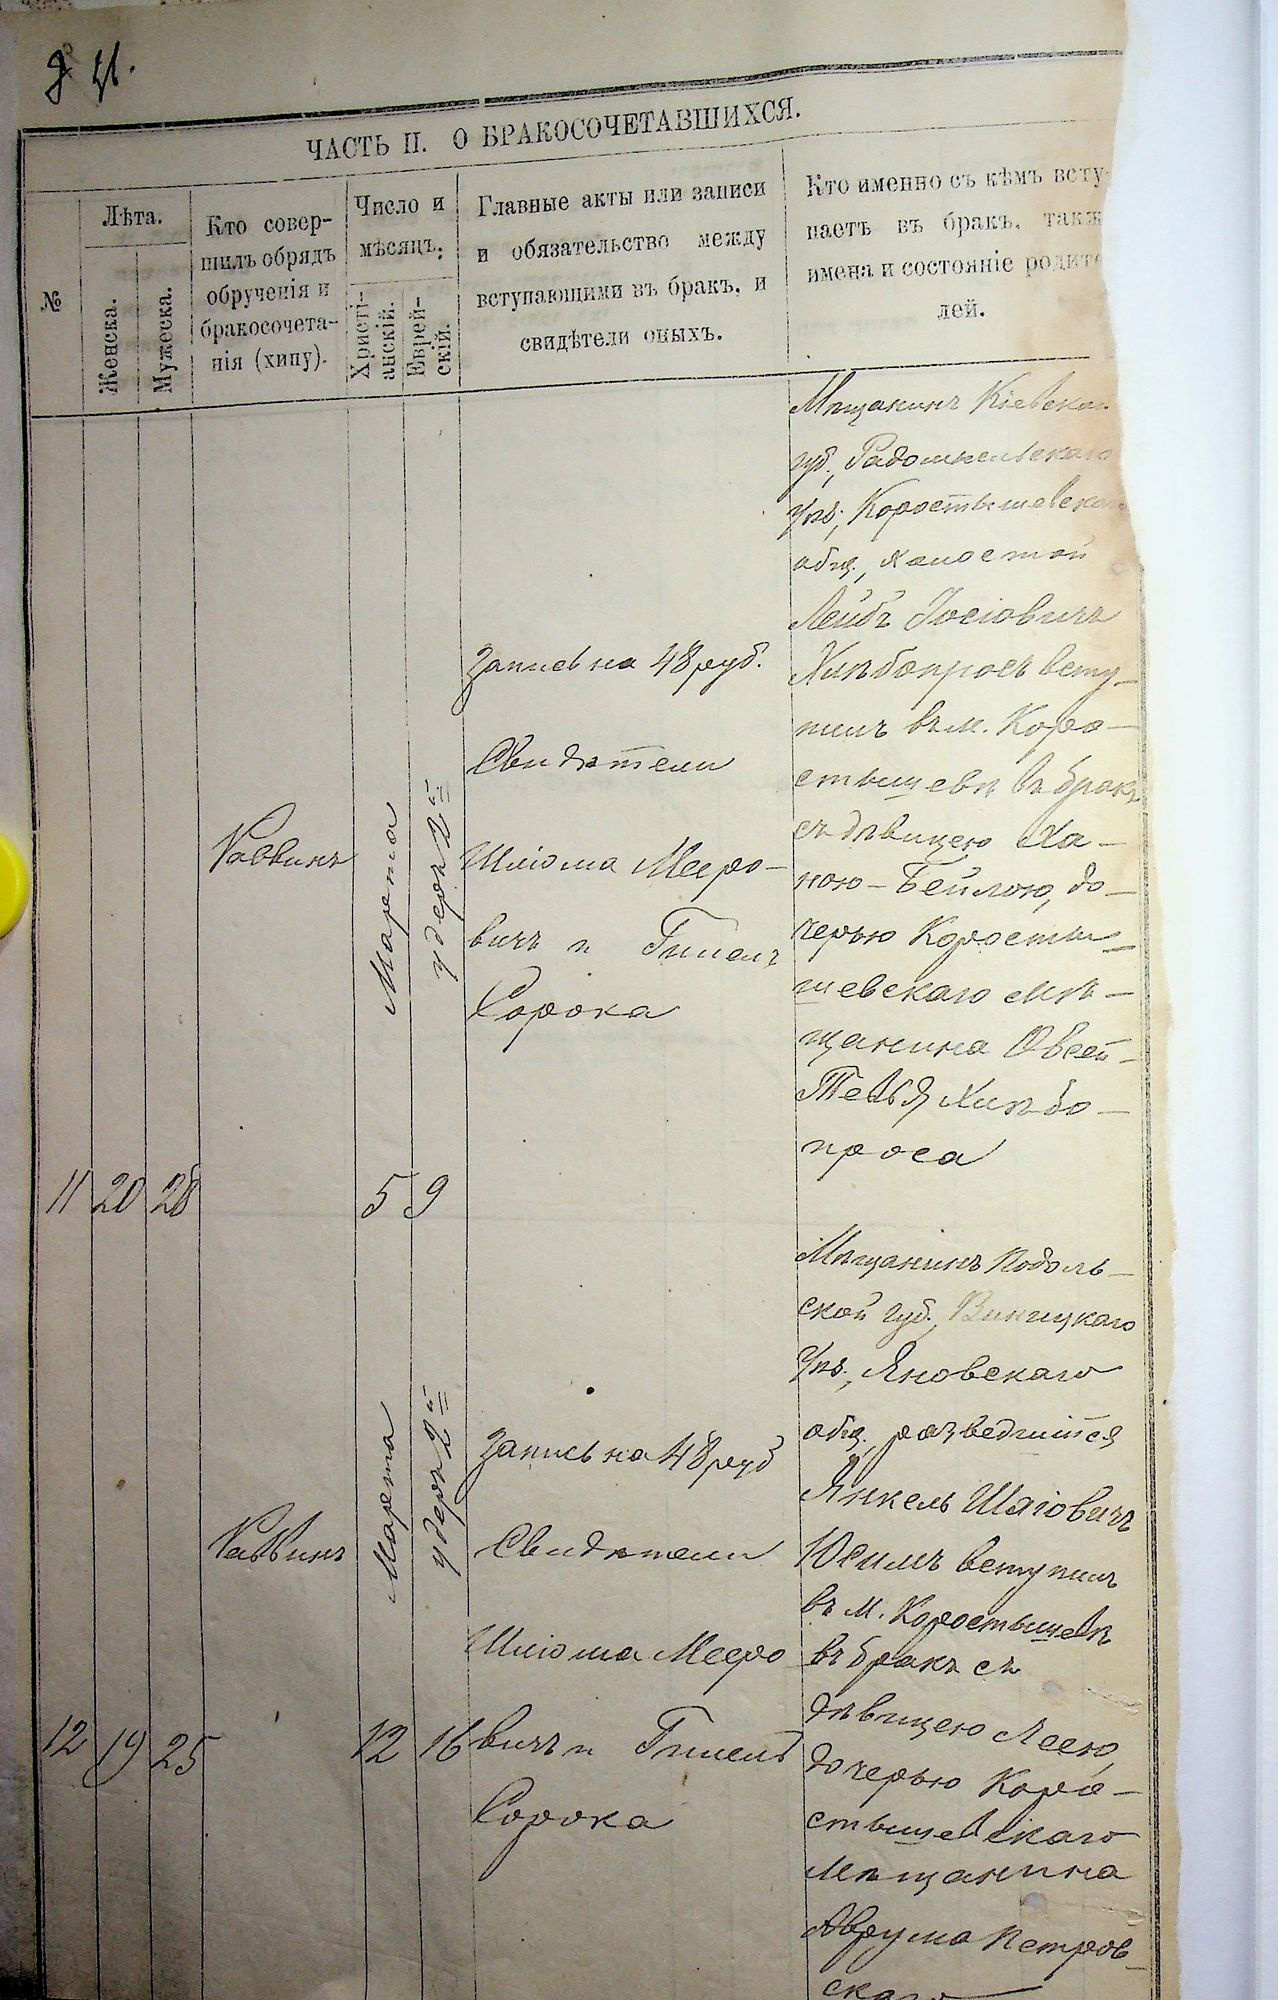 ЧАСТЬ II. О БРАКОСОЧЕТАВШИХСЯ.
№
Лѣта.
Женска.
Мужеска.
Кто совер-
шилъ обрядъ
обрученія и
бракосочета-
нія (хипу).
Число и
мѣсяцъ.
Христі-
анскій.
Еврей-
скій.
Главные акты или записи
и обязательство между
вступающими въ бракъ, и
свидѣтели оныхъ.
Кто именно съ кѣмъ всту-
паетъ въ бракъ, такж
имена и состояніе родите
лей.
11
20
28
Раввинъ
Марта
5
удеръ 2й
9
Запись на 48 руб.
Свидѣтели
Шліома Мееро-
вичъ и Гишелъ
Сорока
Мѣщанинъ Кіевской
губ., Радомысльскаго
уѣз., Коростышевскаго
общ., холостой
Лейбъ Іосіовичъ
Хлѣбопросъ всту-
пилъ въ м. Коро-
стышевѣ въ бракъ
съ дѣвицею Ха-
ною-Бейлою, до-
черью Коросты-
шевскаго мѣ-
щанина Овсей-
Тевья Хлѣбо-
проса
12
19
25
Раввинъ
Марта
12
удеръ 2й
16
Запись на 48 руб
Свидѣтели
Шліома Мееро
вичъ и Гишелъ
Сорока
Мѣщанинъ Подоль-
ской губ., Винницкаго
уѣз., Яновскаго
общ. разведшійся
Янкель Шаіовичъ
Юсимъ вступилъ
въ м. Коростышевѣ
въ бракъ съ
дѣвицею Леею,
дочерью Коро-
стышевскаго
мѣщанина
Аврума Петров-
скаго